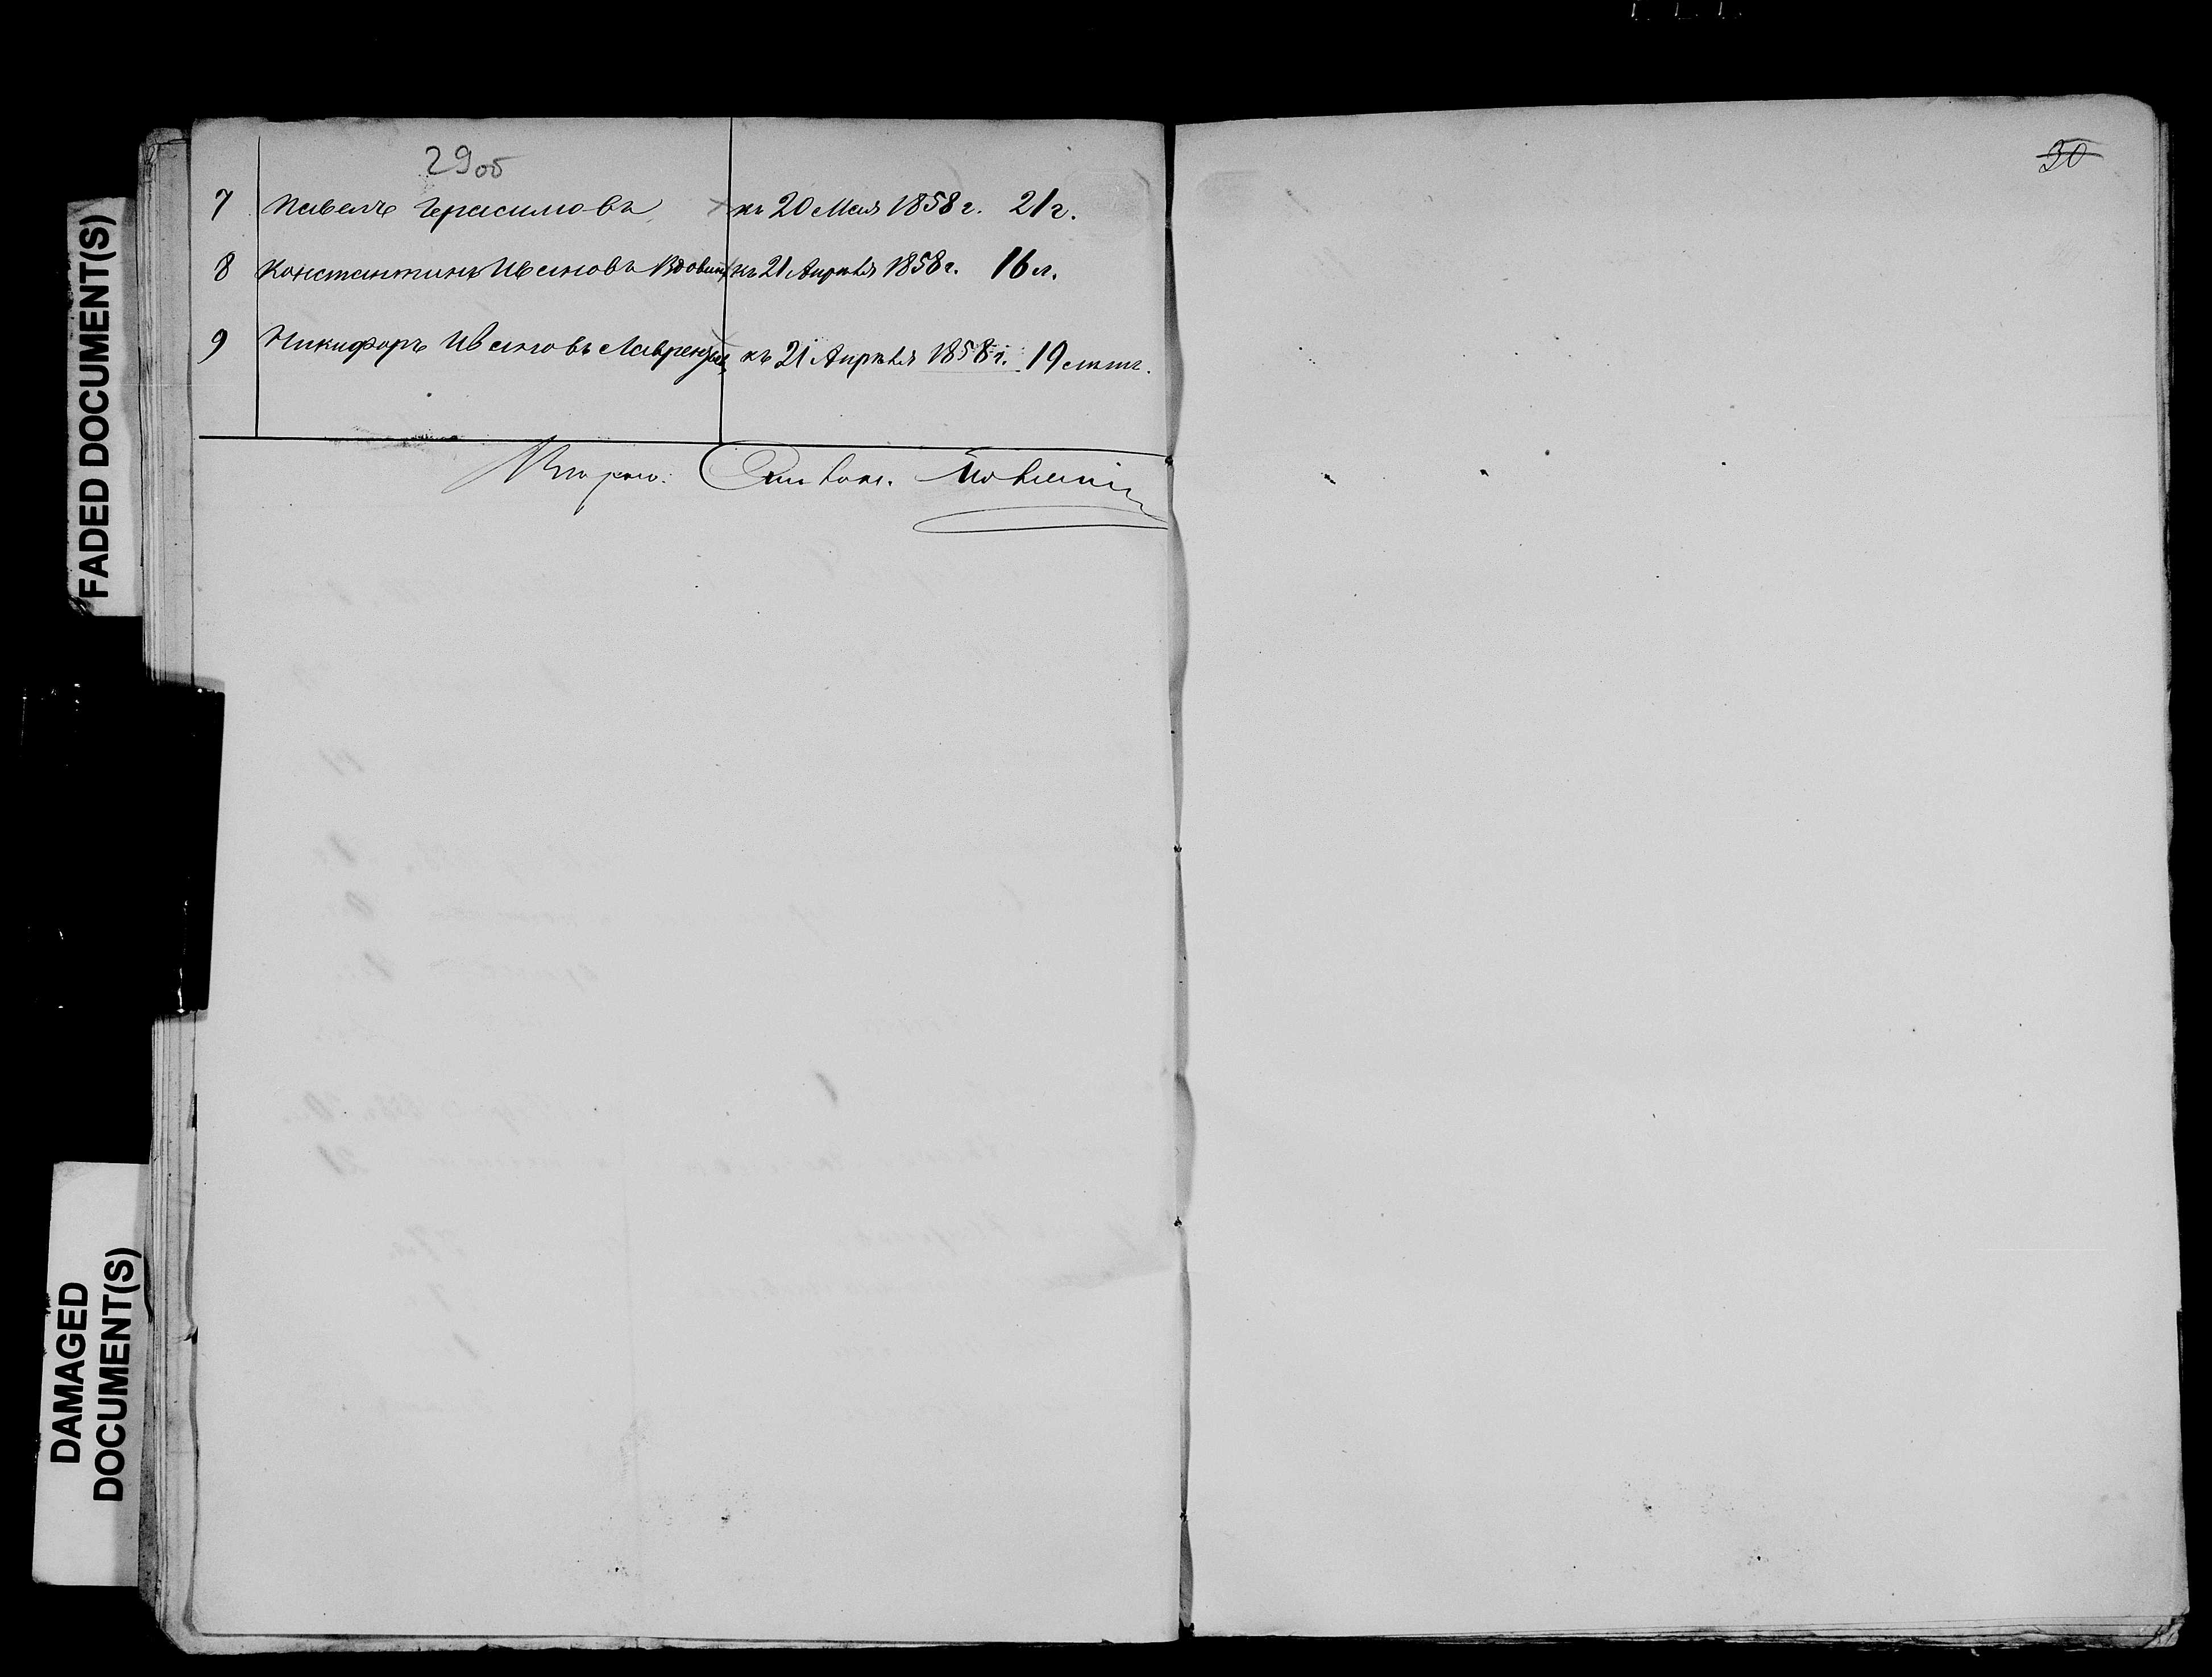 29об
30
7 Павелъ Герасимовъ къ 20 Мая 1858 г. 21 г.
8 Константинъ Ивановъ Вдовинъ къ 21 Апрѣля 1858 г. 16 л.
9 Никифоръ Ивановъ къ 21 Апрѣля 1858 г. 19 лѣтъ.
FADED DOCUMENT(S)
DAMAGED
DOCUMENT(S)